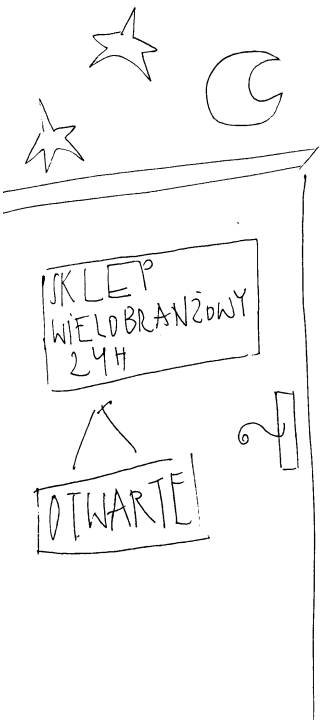 SKLEP
WIELOBRANŻOWY
24H
OTWARTE